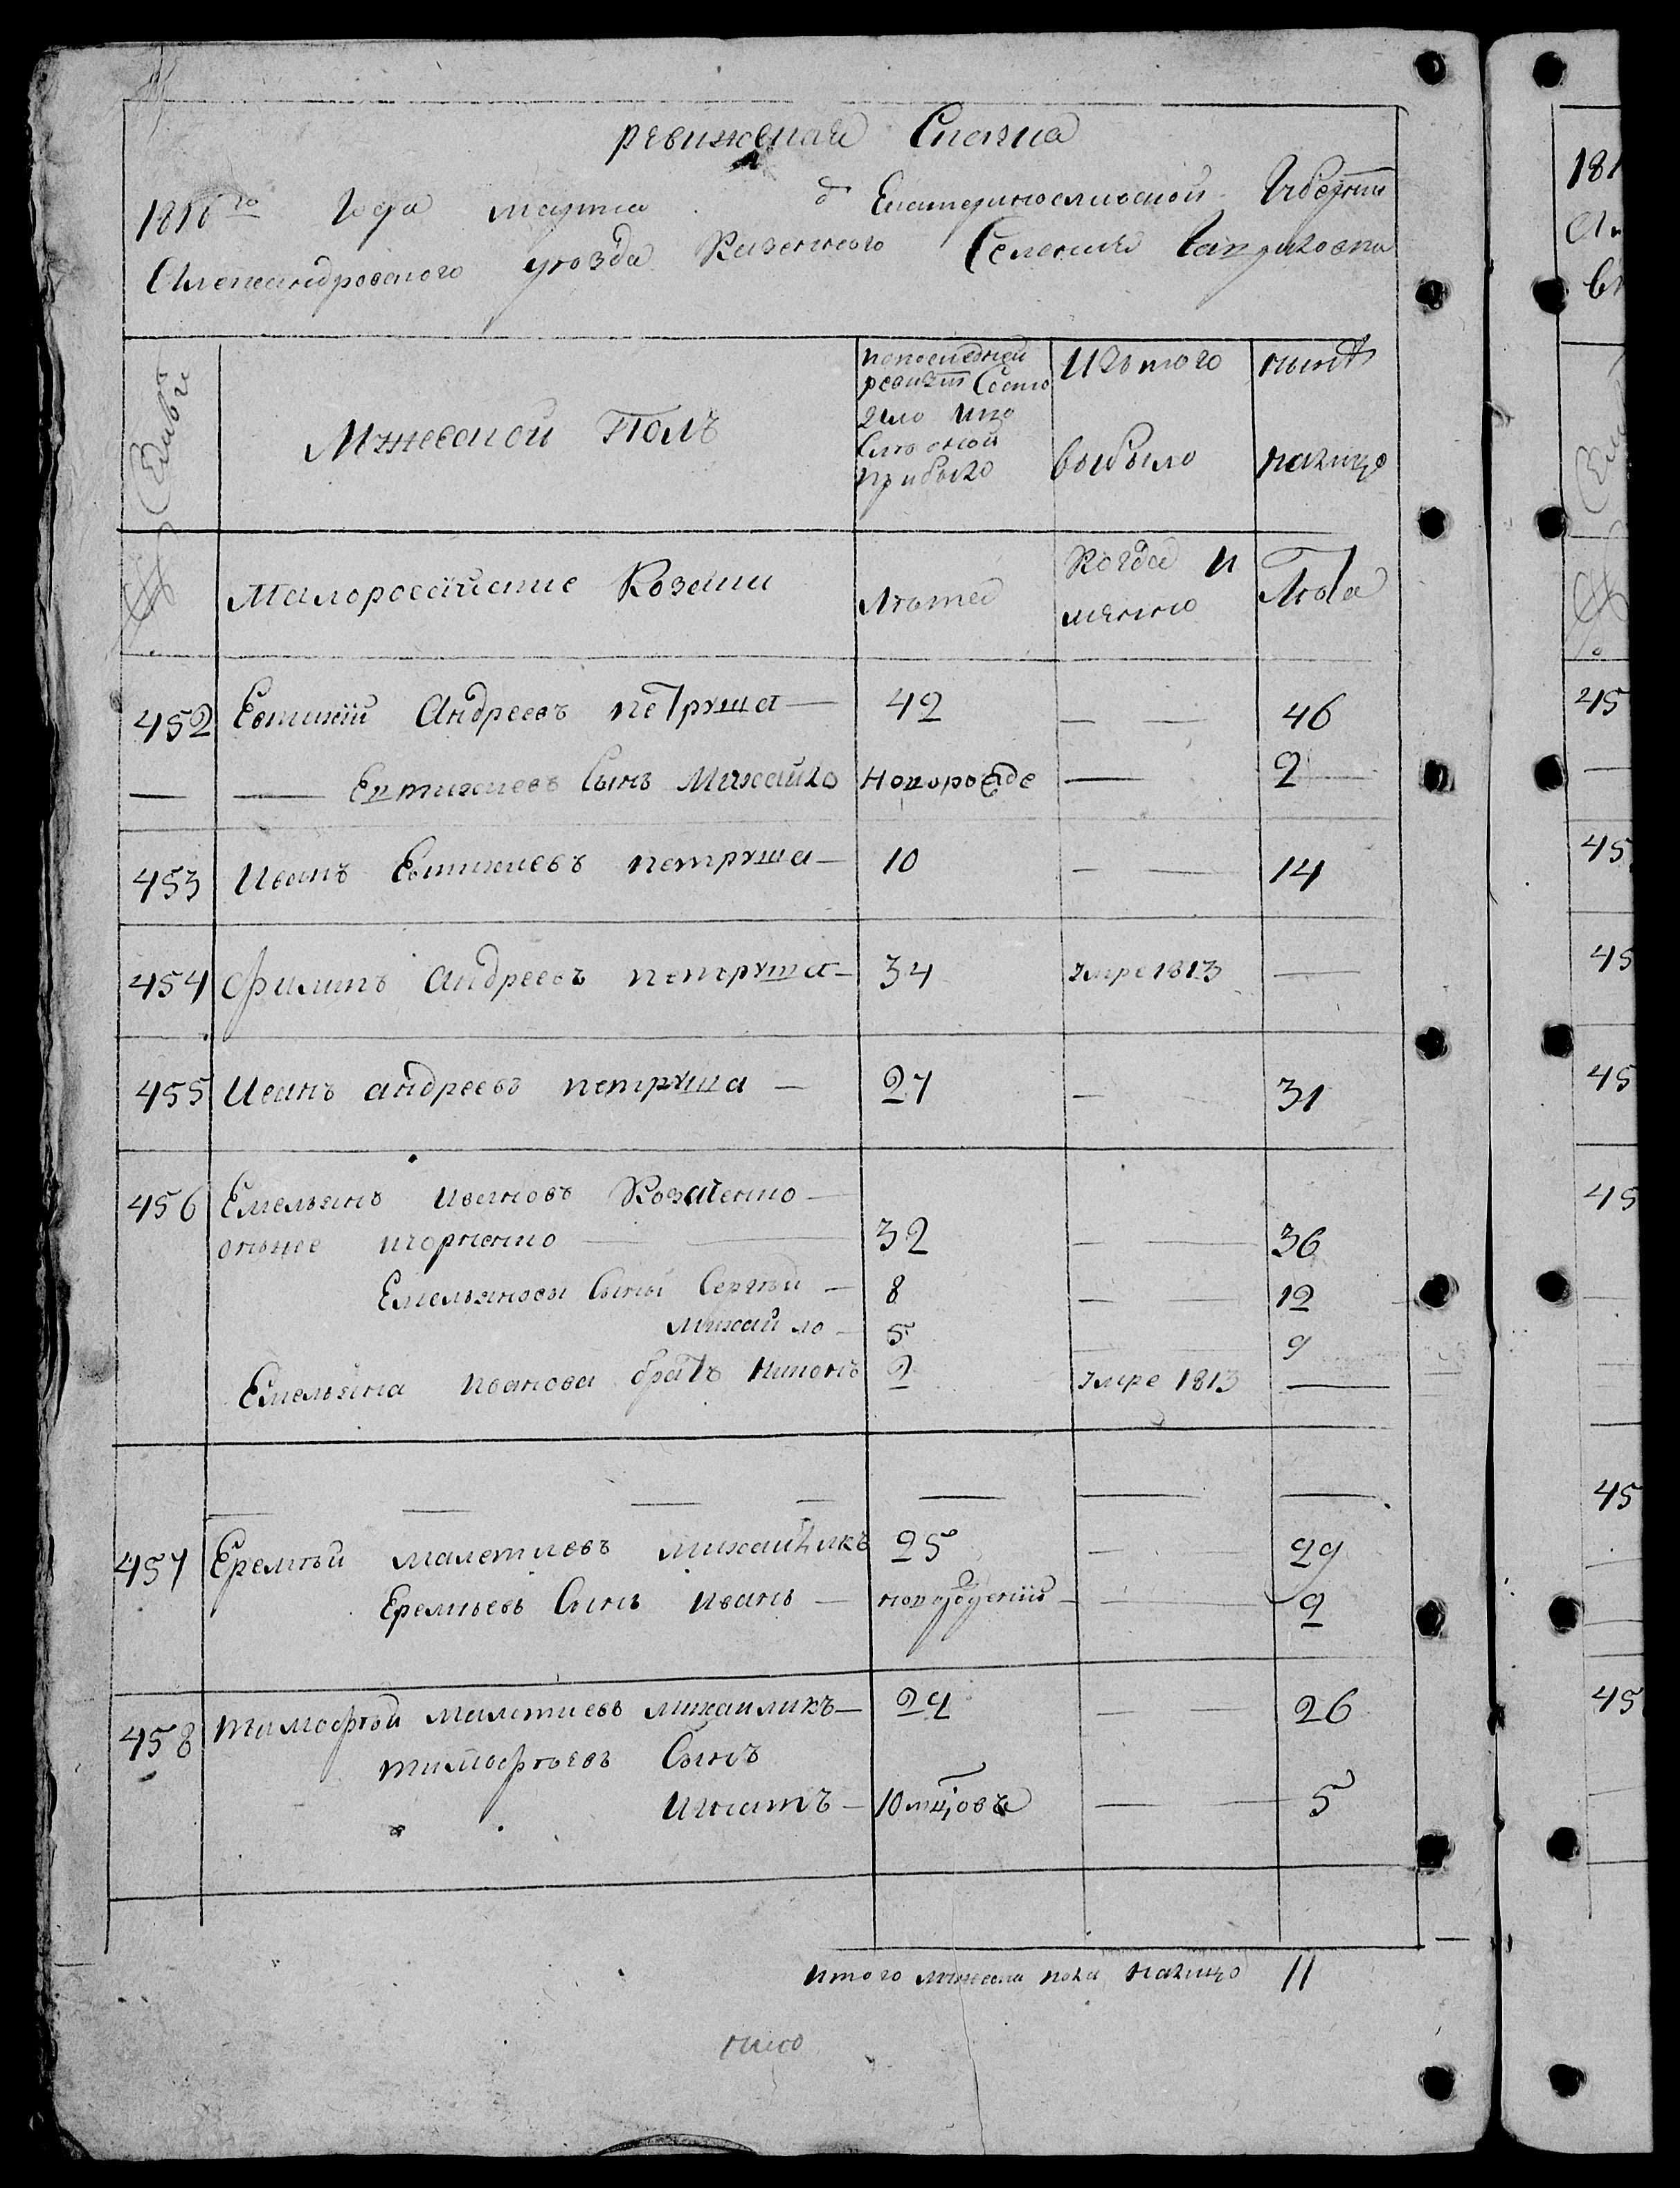 ревижская Сказка
1816го Года марта д Екатеринославской Губернии
Александровского уѣзда Казенного Селения
Мужеской Полъ
попоследней ревизіи Состояло ипослѣ оной прибыло
Изъ того выбыло
нынѣ налицо
Малоросейские Козаки
Лѣта
Когда и мянно
Лѣта
452 Евтихій Андреевъ петруша — 42 — — 46
— — Евтихиевъ Сынъ Михайло Новорожде — 2
453 Иванъ Евтихиевъ петруша — 10 — — 14
454 Филипъ Андреевъ петруша — 34 Умре 1813 —
455 Иванъ андреевъ петруша — 27 — 31
456 Емельянъ ивановъ Козаченко —
онъже чорненко — — 32 — — 36
Емельяновы Сыны Сергѣй — 8 — — 12
михайло — 5 9
Емельяна иванова братъ никонъ 2 Умре 1813 —
— — — — — — —
457 Еремѣй малетиевъ михайликъ 25 — 29
Еремѣевъ Сынъ иванъ — новорожденій — — 2
458 тимофѣй малетиевъ михаиликъ — 24 — — 26
тимофѣевъ Сынъ
Игнатъ — 10 мцовъ — — 5
итого мужеска пола налицо 11